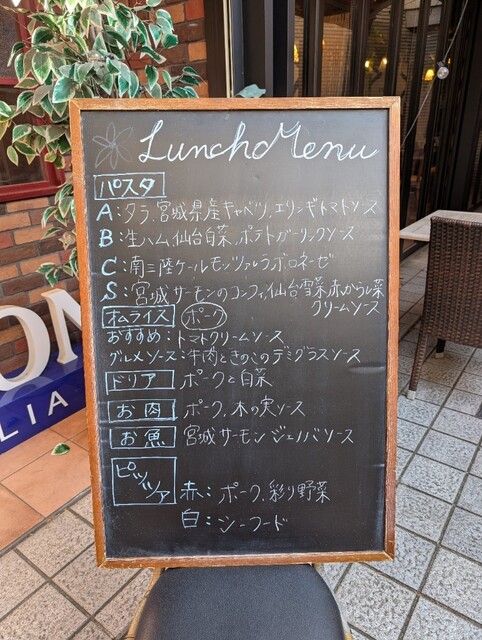 Lunch Menu
パスタ
A:タラ、宮城県産キャベツ、エリンギトマトソース
B:生ハム、仙台白菜、ポテトガーリックソース
C:南三陸ケールモッツァレラボロネーゼ
S:宮城サーモンのコンフィ、仙台雪菜、赤からし菜
クリームソース
オムライス ポーク
おすすめ:トマトクリームソース
グルメソース:牛肉ときのこのデミグラスソース
ドリア ポークと白菜
お肉 ポーク、木の実ソース
お魚 宮城サーモンジェノバソース
ピッツァ
赤:ポーク、彩り野菜
白:シーフード
ON
LIA